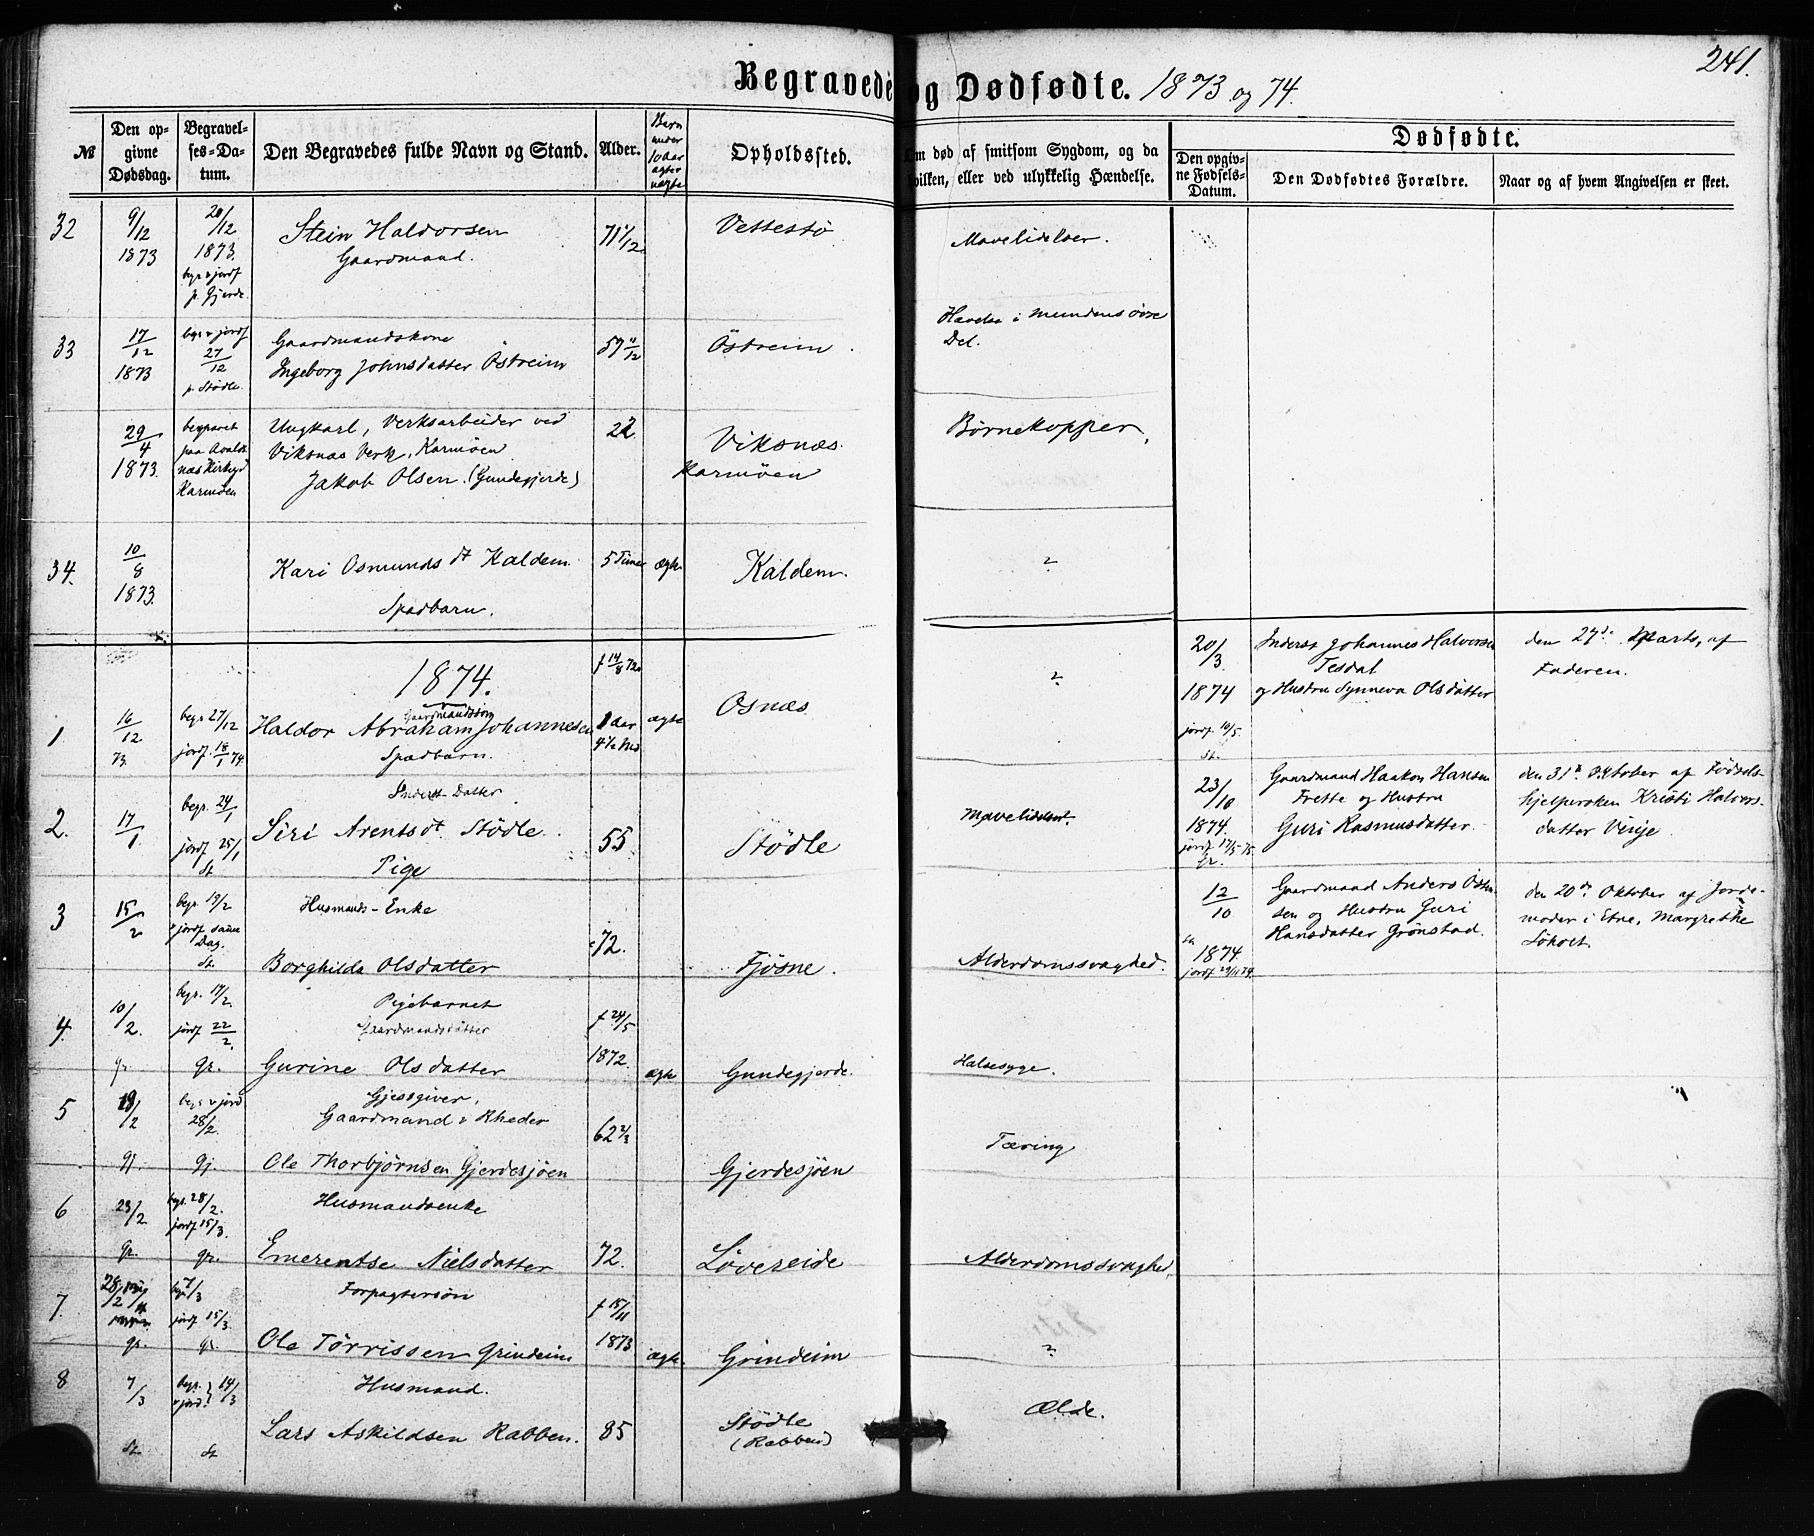 241.
Begravede og Dødfødte. 1873 og 74.
№
Den opgivne Dødsdag.
Begravelses-Datum.
Den Begravedes fulde Navn og Stand.
Alder.
Barn under 10 Aar ægte uægte
Opholdssted.
Om død af smitsom Sygdom, og da hvilken, eller ved ulykkelig Hændelse.
Dødfødte.
Den opgivne Fødsels-Datum.
Den Dødfødtes Forældre.
Naar og af hvem Angivelsen er skeet.
32
9/12 1873
20/12 1873.
begr & jordf
p. Gjerde.
Stein Haldorsen
Gaardmand.
71 1/12
Vettestø
Mavelidelser.
33
17/12 1873
begr & jordf
27/12
p. Stødle.
Gaardmandskone
Ingeborg Johnsdatter Østreim
59 11/12
Østreim
Hævelse i Mundens øvre
Del.
29/4 1873.
begravet
paa Avalds
næs Kirkegd
Karmøen
Ungkarl, Verksarbeider ved
Viksnæs Verk, Karmøen
Jakob Olsen. (Gundegjerde)
22.
Viksnæs
Karmøen
Børnekopper,
34.
10/8 1873.
Kari Osmunds dt Kaldem.
Spædbarn.
5 Timer
ægte
Kaldem.
?
1874.
1
16/12 73
begr 27/12
jordf. 18/1 74.
Gaardmandssøn
Haldor Abraham Johannesen
Spædbarn.
f 14/8 72
1 aar
4 1/2 Md
ægte
Osnæs
?
20/3 1874
jordf 10/5.
St.
Inderst Johannes Halvorsen
Tesdal
og Hustru Synneva Olsdatter
den 27de Marts, af
Faderen.
2.
17/1
begr. 24/1
jordf 25/1
St
Inderst-Datter
Siri Arentsdt. Stødle.
Pige
55
Stødle
Mavelidelser.
23/10 1874.
jordf 17/5 75.
Gr.
Gaardmand Haakon Hansen
Frette og Hustru
Guri Rasmusdatter.
den 31te Oktober af Fødsels-
hjelpersken Kristi Halvors-
datter Vinje.
3
15/2
begr. 19/2
& jordf samme
Dag.
St.
Husmands-Enke
Borghilda Olsdatter
72.
Fjøsne.
Alderdomssvaghed.
12/10 1874.
jordf 29/11 74.
Gaardmand Anders Østen-
sen og Hustru Guri
Hansdatter Grønstad.
den 20de Oktober af Jorde-
moder i Etne, Margrethe
4.
10/2.
gr
begr. 17/2.
jordf 22/2.
gr.
Pigebarnet
Gaardmandsdatter
Gurine Olsdatter
f 24/5 1872.
ægte
Gundegjerde.
Halsesyge.
5
19/2
gj.
begr & jord
28/2.
gj.
Gjestgiver,
Gaardmand & Rheder
Ole Thorbjørnsen Gjerdesjøen
62 2/3
Gjerdesjøen
Tæring
6
23/2
gr.
begr. 28/2.
jordf 15/3.
gr.
Husmandsenke
Emerentse Nielsdatter
72.
Løvereide
Alderdomssvaghed,
7.
28/2
gr.
begr 7/3
jordf 15/3.
gr.
Forpagtersøn
Ole Tørrissen Grindeim
f 15/11 1873
ægte.
Grindeim
?
8
7/3
St.
begr.
& jord. } 14/3
St
Husmand.
Lars Askildsen Rabben.
85
Stødle
(Rabben)
Ælde.